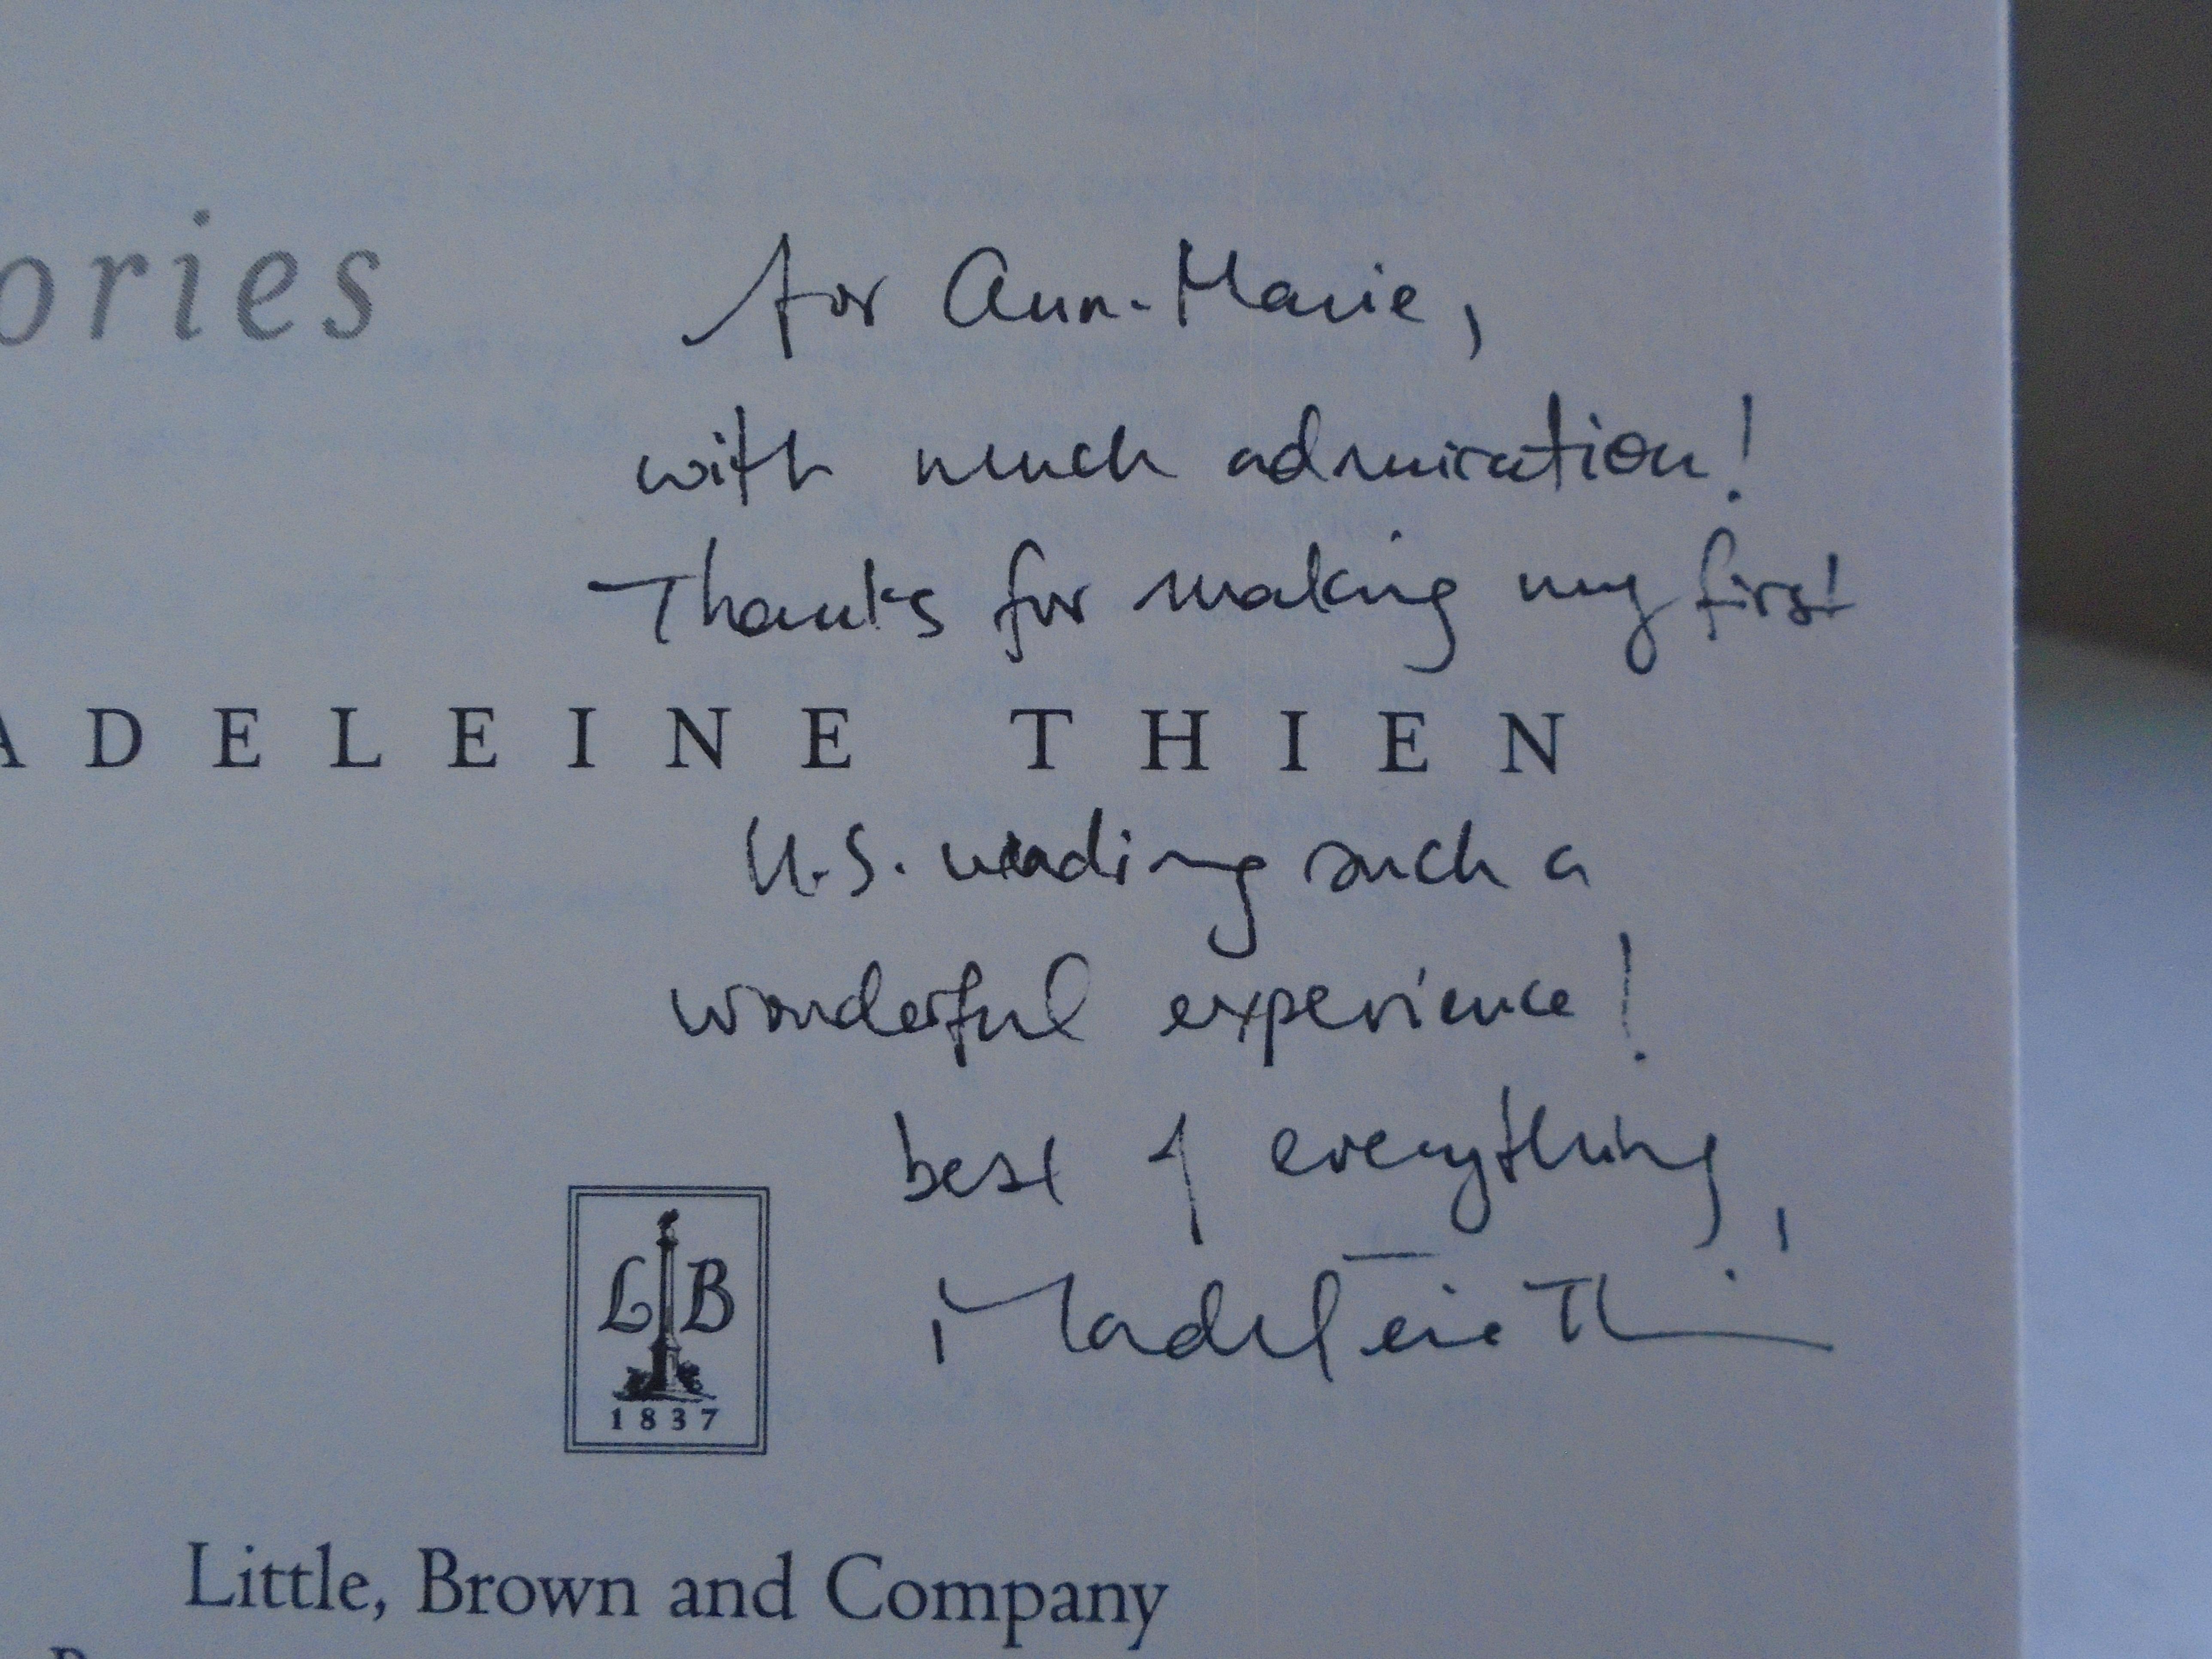 ories
for Ann-Marie,
with much admiration!
Thanks for making my first
ADELEINE THIEN
U.S. reading such a
wonderful experience!
best of everything,
Madeleine Thien
L B
1837
Little, Brown and Company